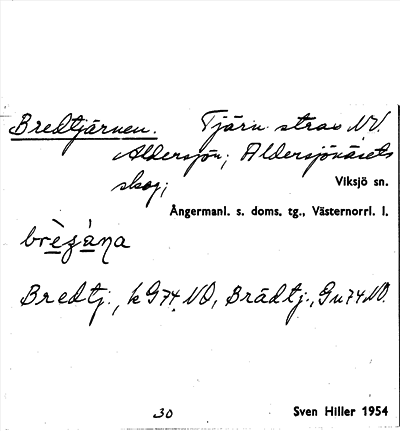 Bredtjärnen. Tjärn strax NV.
Aldersjön; Aldersjönäsets
skog; Viksjö sn.
Ångermanl. s. doms. tg., Västernorrl. l.
Bredtj., k G74 NO, Brädtj., Gu74NO.
30 Sven Hiller 1954